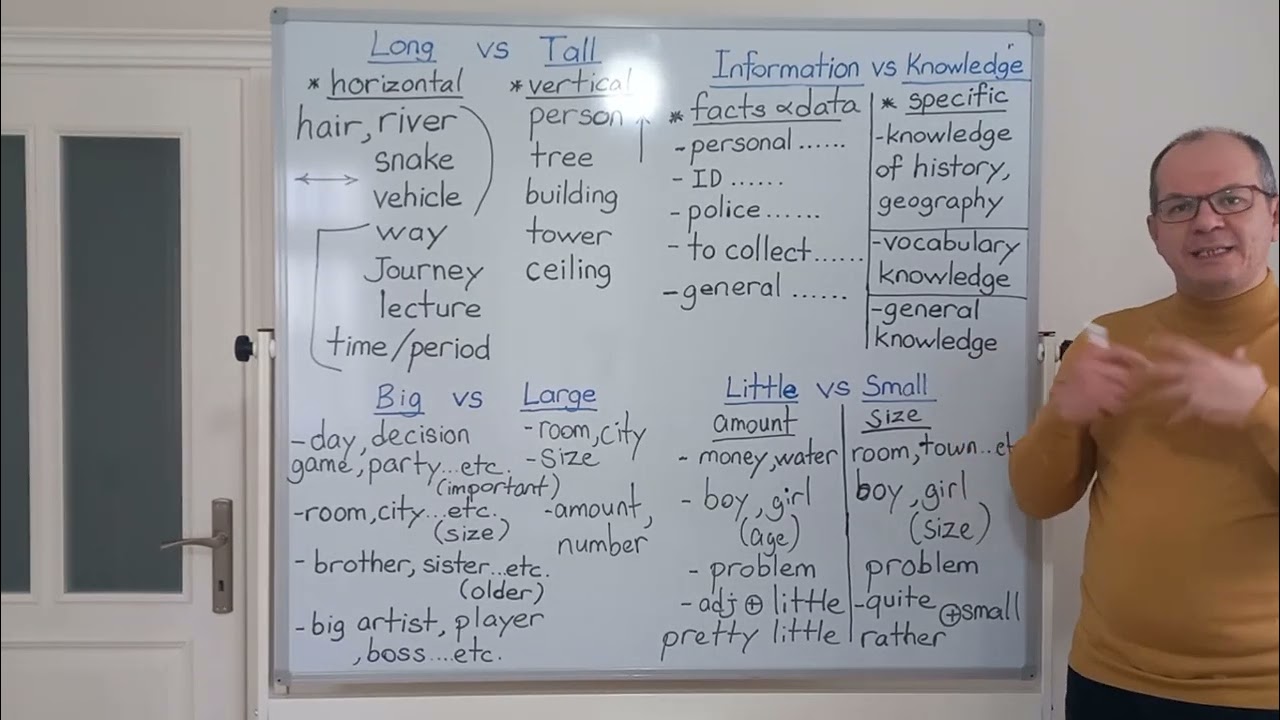 Long vs Tall
* horizontal
hair, river
snake
vehicle
way
Journey
lecture
time/period
* vertical
person
tree
building
tower
ceiling
Information vs Knowledge
* facts & data
- personal ......
- ID ......
- police ......
- to collect ......
- general ......
* specific
- knowledge
of history,
geography
- vocabulary
knowledge
- general
knowledge
Big vs Large
- day, decision
game, party...etc.
(important)
- room, city...etc.
(size)
- brother, sister...etc.
(older)
- big artist, player
, boss....etc.
- room, city
- size
- amount,
number
Little vs Small
amount
- money, water
- boy, girl
(age)
- problem
- adj ⊕ little
pretty little
size
room, town...et
boy, girl
(size)
problem
- quite ⊕ small
rather